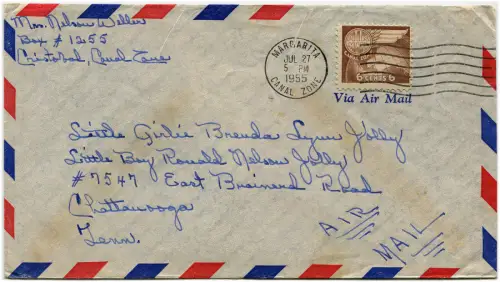 Mrs. Nelson Weller
Box # 1255
Cristobal, Canal Zone
MARGARITA
JUL 27
5 PM
1955
CANAL ZONE
6 CENTS 6
Via Air Mail
Little Girlie Brenda Lynn Jolly
Little Boy Ronald Nelson Jolly
# 7547 East Brainerd Road
Chattanooga
Tenn.
AIR
MAIL